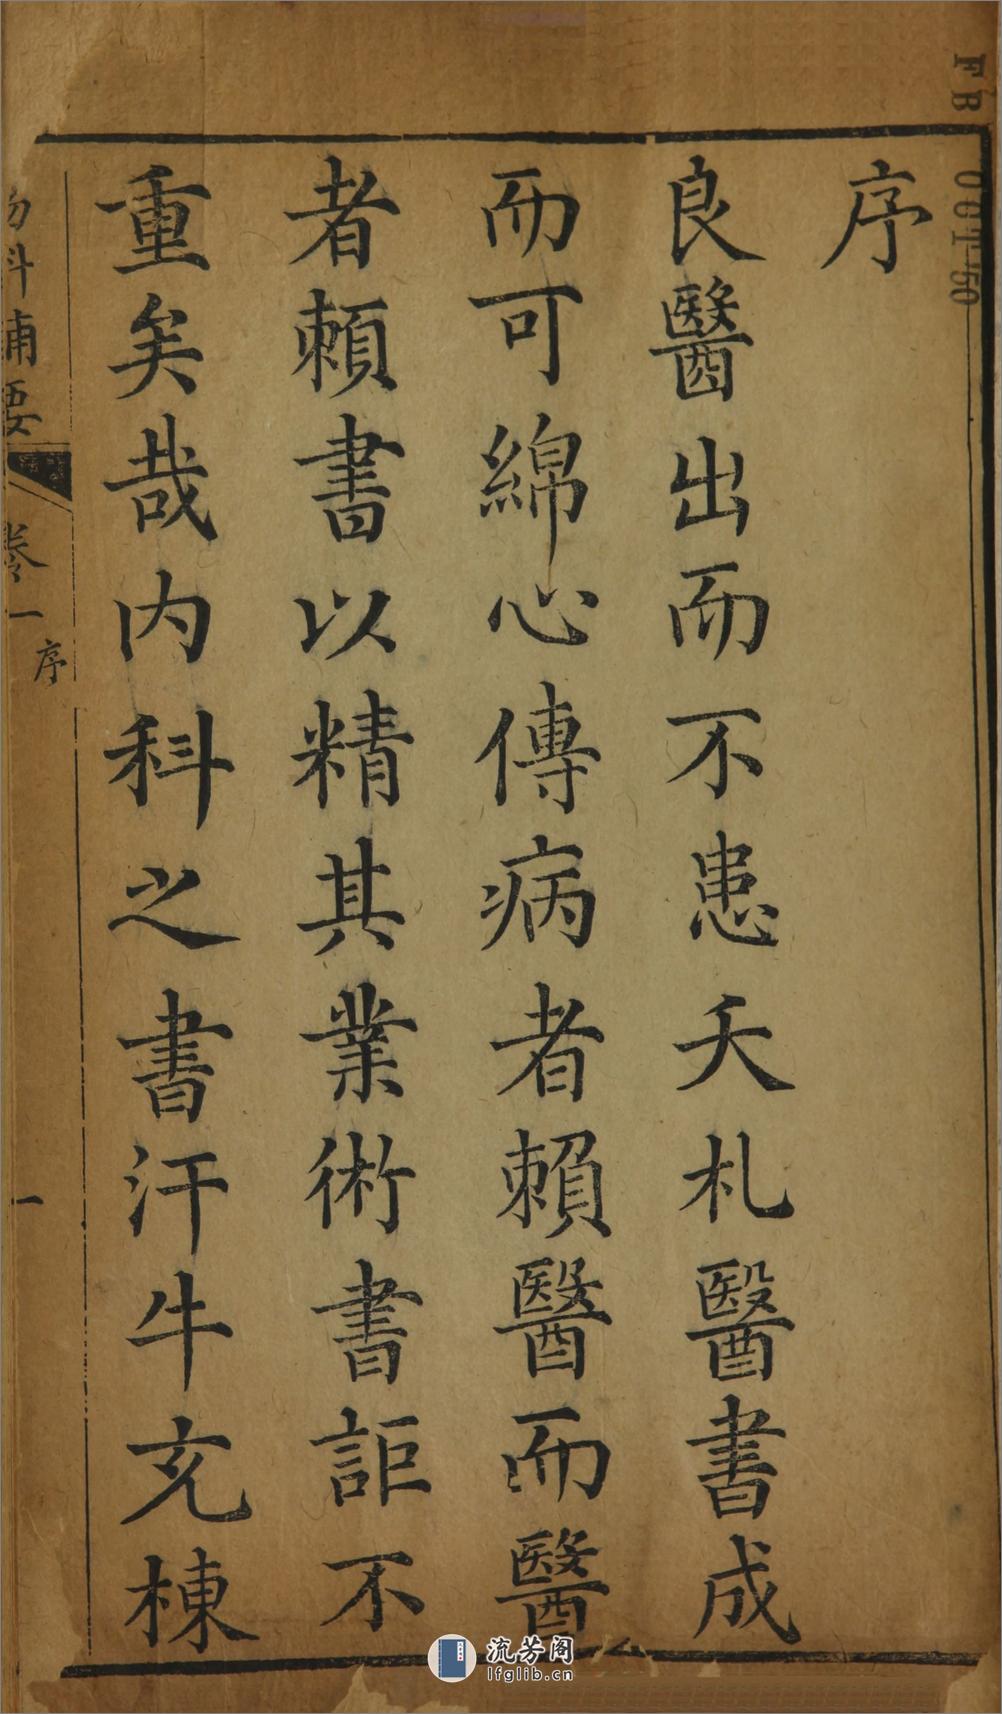 序
良醫出而不患夭札醫書成
而可綿心傳病者賴醫而醫
者賴書以精其業術書詎不
重矣哉內科之書汗牛充棟
卷一
序
一
FB
OCT 50
流芳阁
lfglib.cn